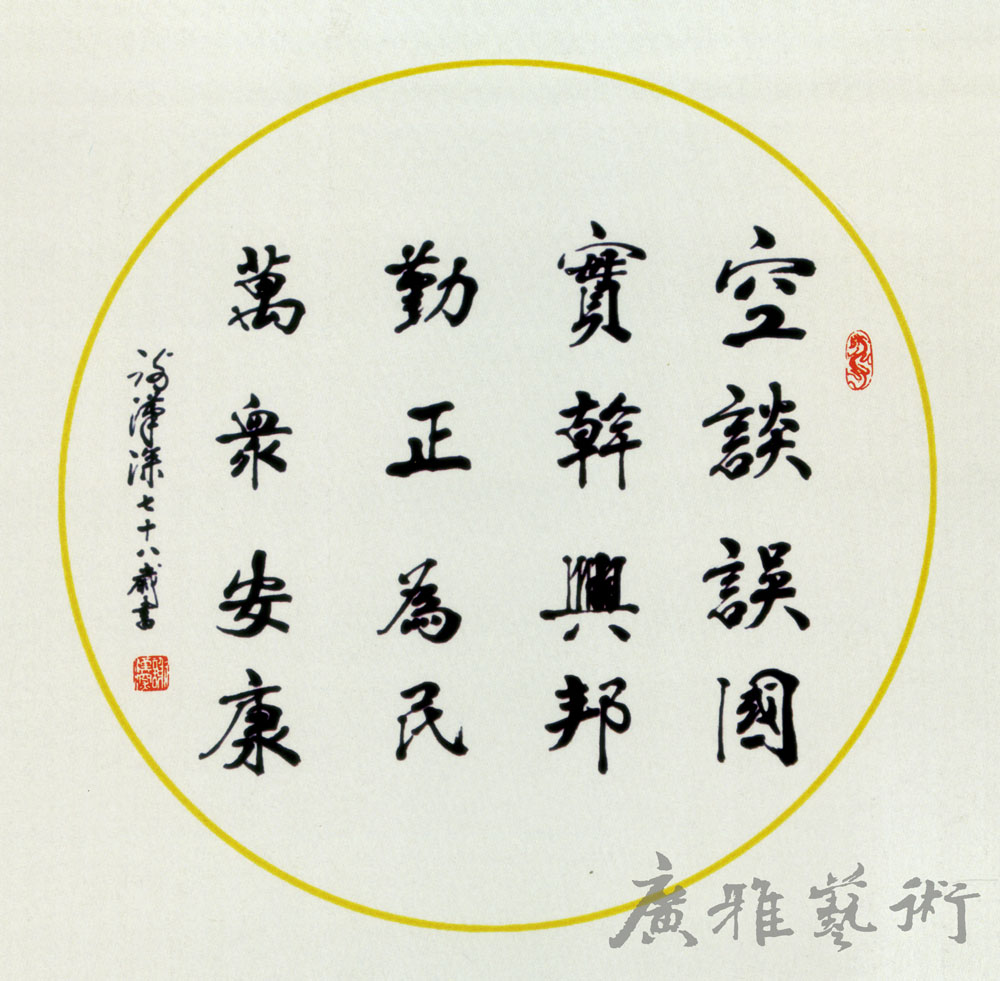 空談誤國
實幹興邦
勤正為民
萬衆安康
漢深七十八歲書
廣雅藝術